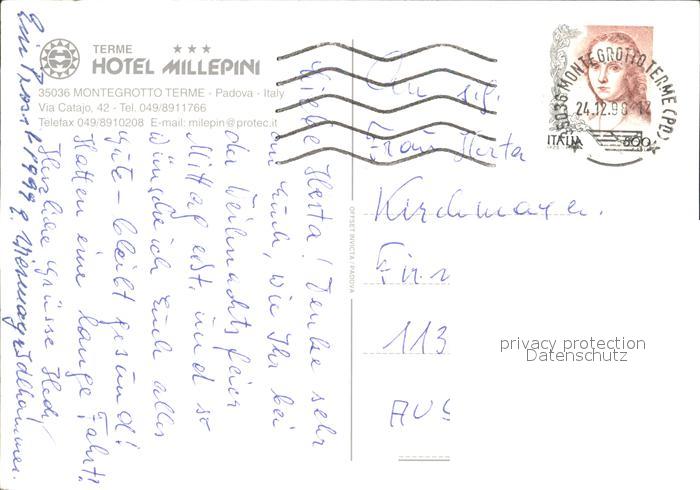 TERME ★★★
HOTEL MILLEPINI
35036 MONTEGROTTO TERME - Padova - Italy
Via Catajo, 42 - Tel. 049/8911766
Telefax 049/8910208 E-mail: milepin@protec.it
Liebe Herta! Denke sehr
an Euch, wie Ihr bei
der Weihnachtsfeier
Mittag eßt, und so
wünsche ich Euch alles
gute - bleibt gesund!
Hatten eine lange Fahrt!
Herzliche Grüsse Hedy
1999
OFFSET INVICTA - PADOVA
35036 MONTEGROTTO TERME (PD)
24.12.98-12
ITALIA 800
An s.g.
Frau Herta
Kirchmayer.
Fir
113
AUS
privacy protection
Datenschutz